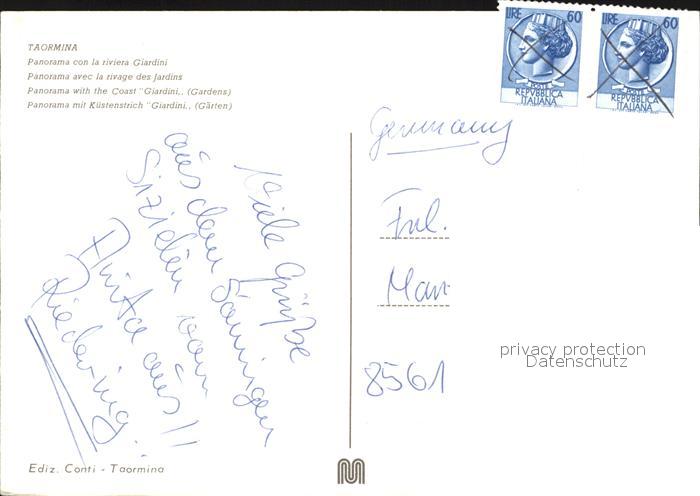 TAORMINA
Panorama con la riviera Giardini
Panorama avec la rivage des Jardins
Panorama with the Coast "Giardini,, (Gardens)
Panorama mit Küstenstrich "Giardini,, (Gärten)
Viele Grüße
aus dem sonnigen
Sizilien von
aus!!
Ediz. Conti - Taormina
LIRE 60
POSTE
REPVBBLICA
ITALIANA
LIRE 60
POSTE
REPVBBLICA
ITALIANA
Germany
Frl.
Mar
8561
privacy protection
Datenschutz